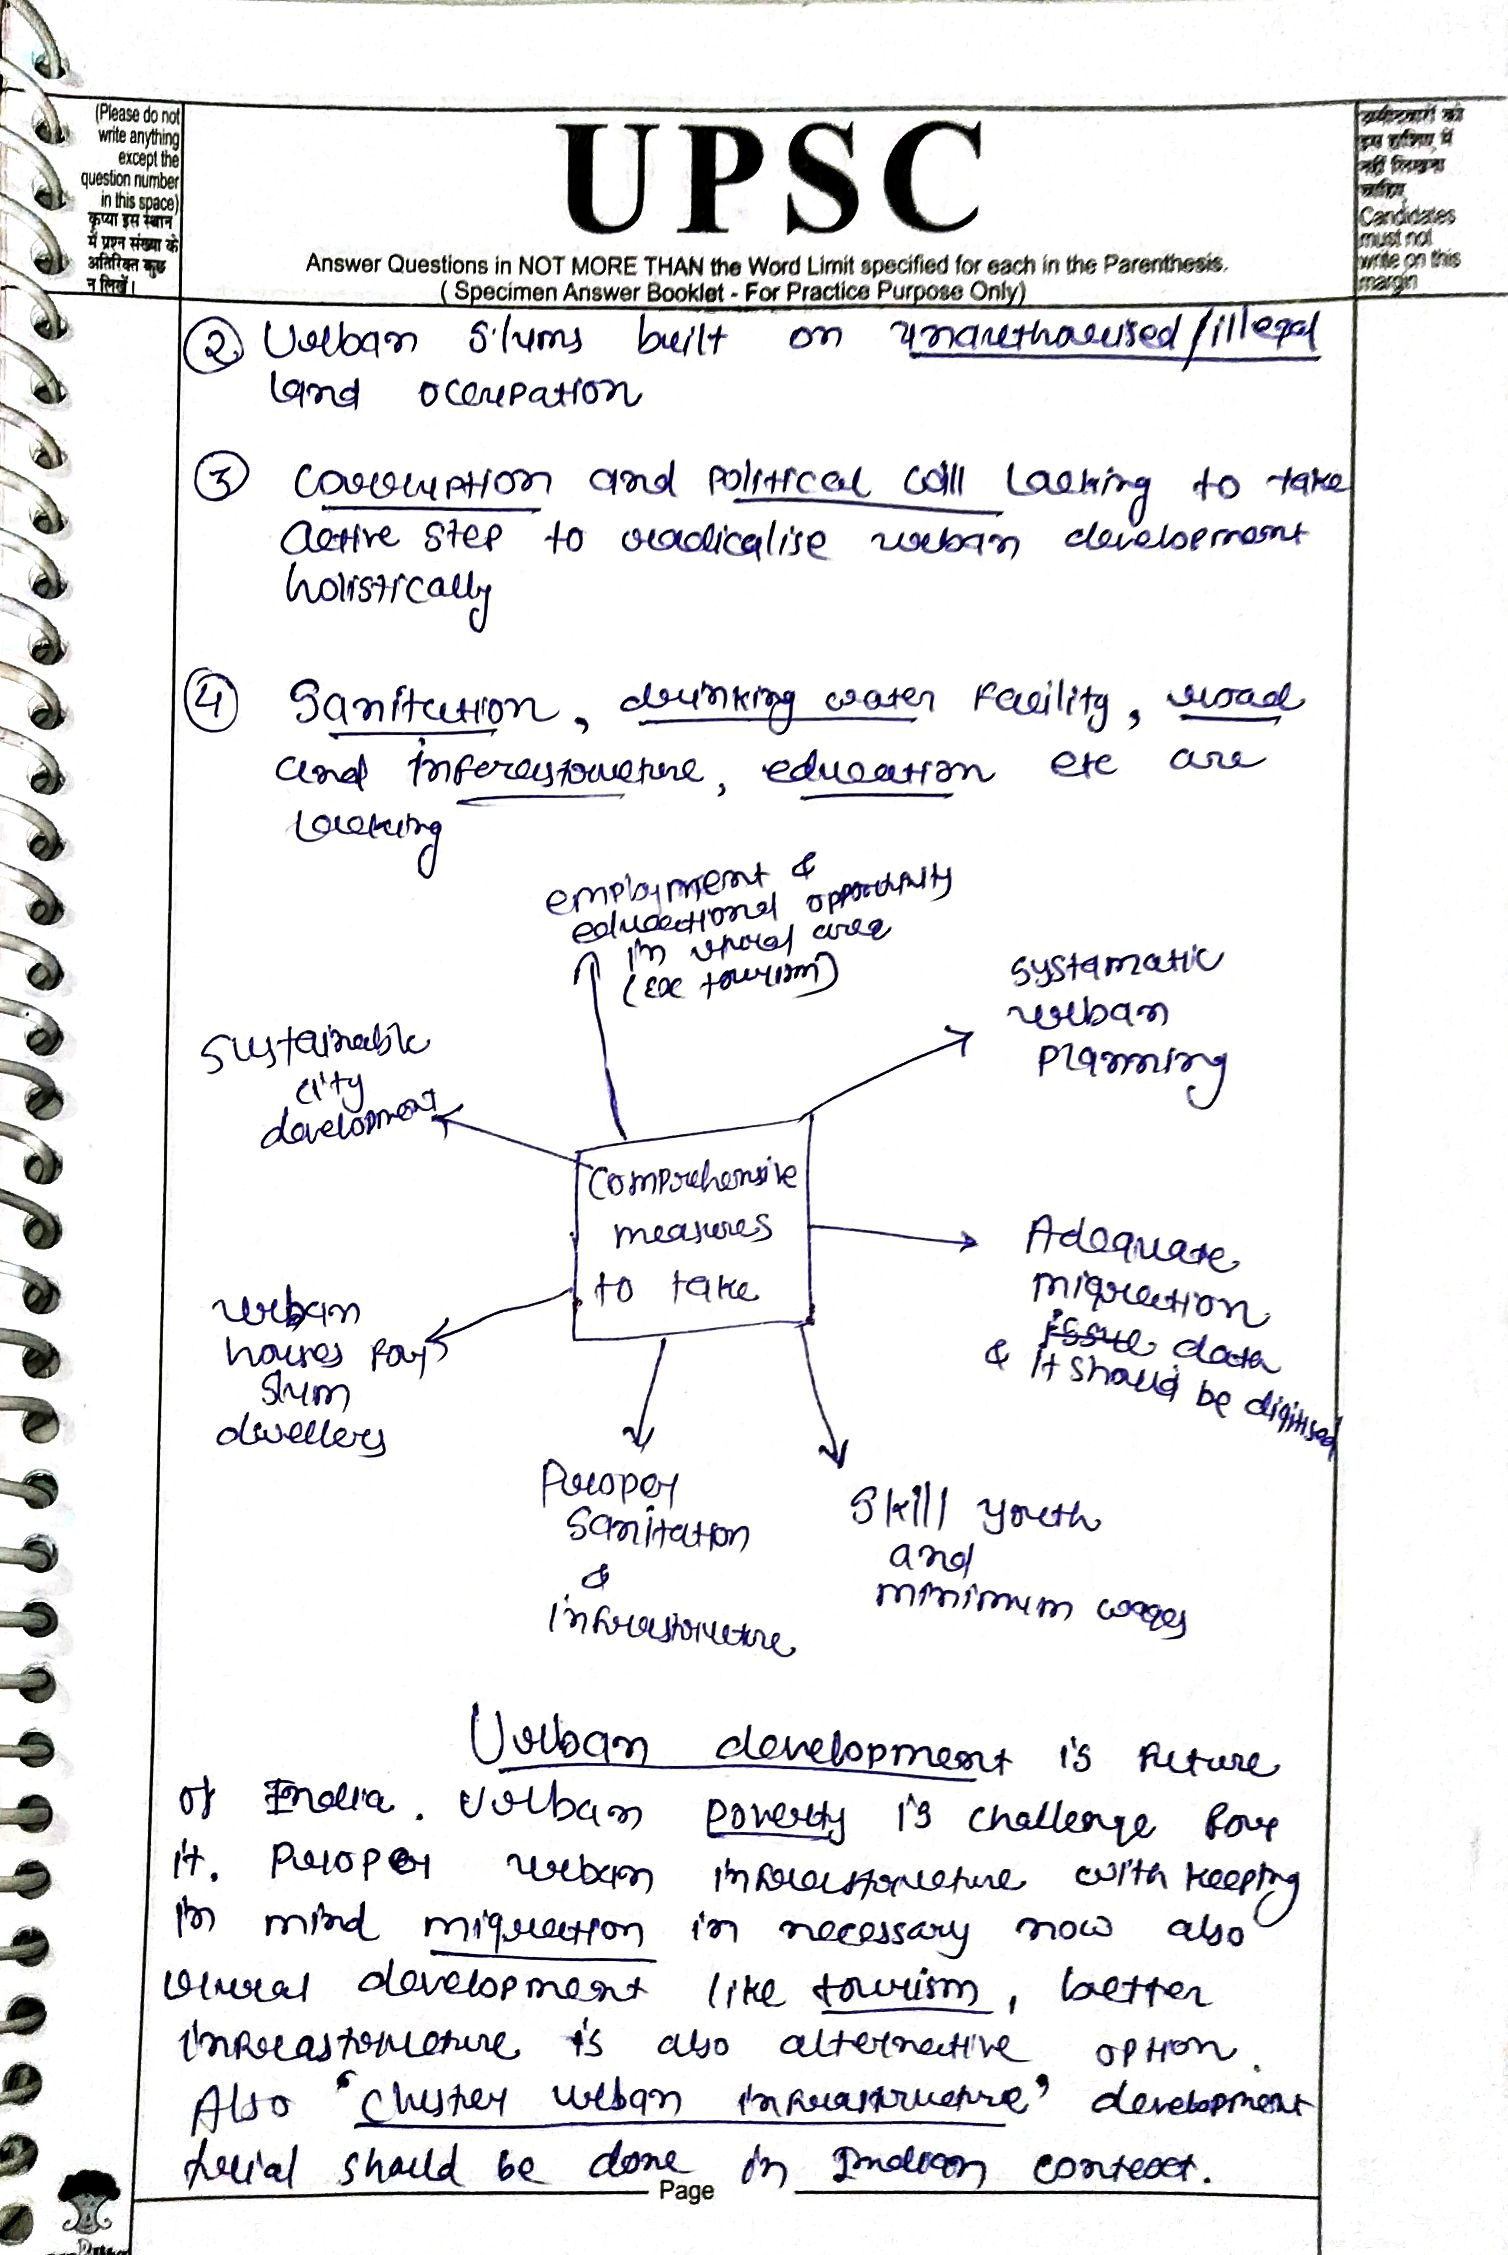 (Please do not
write anything
except the
question number
in this space)
कृप्या इस स्थान
में प्रश्न संख्या के
अतिरिक्त कुछ
न लिखें।
UPSC
Answer Questions in NOT MORE THAN the Word Limit specified for each in the Parenthesis.
( Specimen Answer Booklet - For Practice Purpose Only)
उम्मीदवारों को
इस हाशिए में
नहीं लिखना
चाहिए
Candidates
must not
write on this
margin
② Urban slums built on unauthorised/illegal
land occupation
③ Corruption and political will lacking to take
active step to radicalise urban development
holistically
④ Sanitation, drinking water facility, road
and infrastructure, education etc are
lacking
employment &
educational opportunity
in rural area
(ex tourism)
systamatic
urban
planning
Sustainable
city
development
Comprehensive
measures
to take
Adequate
migration
issue data
& it should be digitised
urban
houses for
slum
dwellers
Proper
sanitation
&
infrastructure
Skill youth
and
minimum wages
Urban development is future
of India. Urban poverty is challenge for
it. Proper urban infrastructure with keeping
in mind migration in necessary now also
rural development like tourism, better
infrastructure is also alternative option.
Also 'cluster urban infrastructure' development
trial should be done in Indian context.
Page